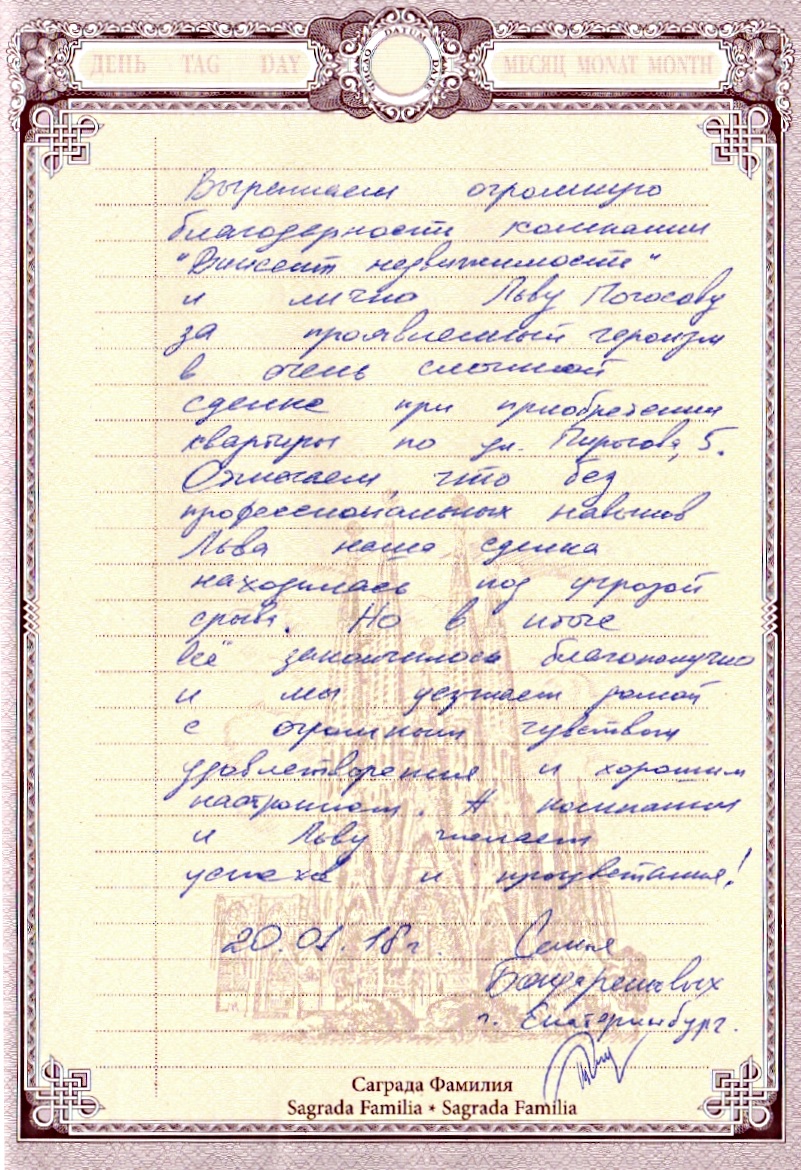 ДЕНЬ TAG DAY
DATUM
МЕСЯЦ MONAT MONTH
Выражаем огромную
благодарность компании
"Винсент недвижимость"
и лично Льву Погосову
за проявленный героизм
в очень сложной
сделке при приобретении
квартиры по ул. Пирогова, 5.
Отмечаем, что без
профессиональных навыков
Льва наша сделка
находилась под угрозой
срыва. Но в итоге
всё закончилось благополучно
и мы уезжаем домой
с огромным чувством
удовлетворения и хорошим
настроением. А компании
и Льву желаем
успеха и процветания!
20.01.18г. Семья
г. Екатеринбург.
Саграда Фамилия
Sagrada Familia * Sagrada Família